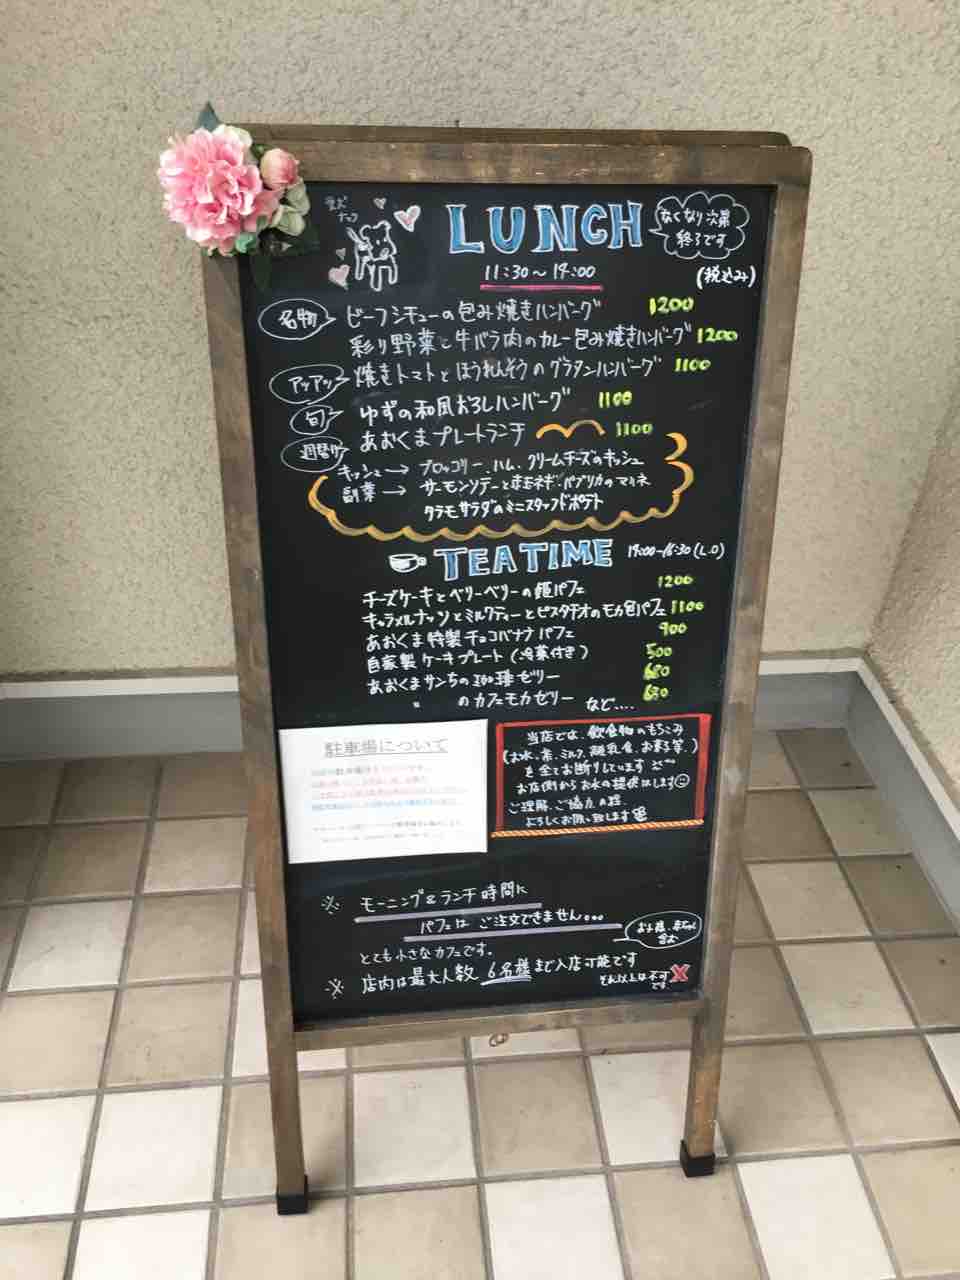 愛犬
ナッツ
LUNCH
なくなり次第
終了です
11:30〜14:00
(税込み)
名物
ビーフシチューの包み焼きハンバーグ 1200
彩り野菜と牛バラ肉のカレー包み焼きハンバーグ 1200
アツアツ
焼きトマトとほうれんそうのグラタンハンバーグ 1100
旬
ゆずの和風おろしハンバーグ 1100
週替り
あおくまプレートランチ 1100
キッシュ→ ブロッコリー、ハム、クリームチーズのキッシュ
副菜→ サーモンソテーと玉ネギ、パプリカのマリネ
タラモサラダのミニスタッフドポテト
TEATIME 14:00-16:30(L.O)
チーズケーキとベリーベリーの姫パフェ 1200
キャラメルナッツとミルクティーとピスタチオのモカ色パフェ 1100
あおくま特製チョコバナナパフェ 900
自家製ケーキプレート(冷菓付き) 500
あおくまサンちの珈琲ゼリー 680
〃 のカフェモカゼリー 630
など....
駐車場について
当店では、飲食物のもちこみ
(お水、茶、ミルク、離乳食、お菓子等、)
を全てお断りしています
お店側からお水の提供はします
ご理解、ご協力の程、
よろしくお願い致します
※ モーニング&ランチ時間に
パフェは ご注文できません。。。
お子様、赤ちゃん
含む
とても小さなカフェです。
※ 店内は最大人数 6名様まで入店可能です
それ以上は不可 X
です。